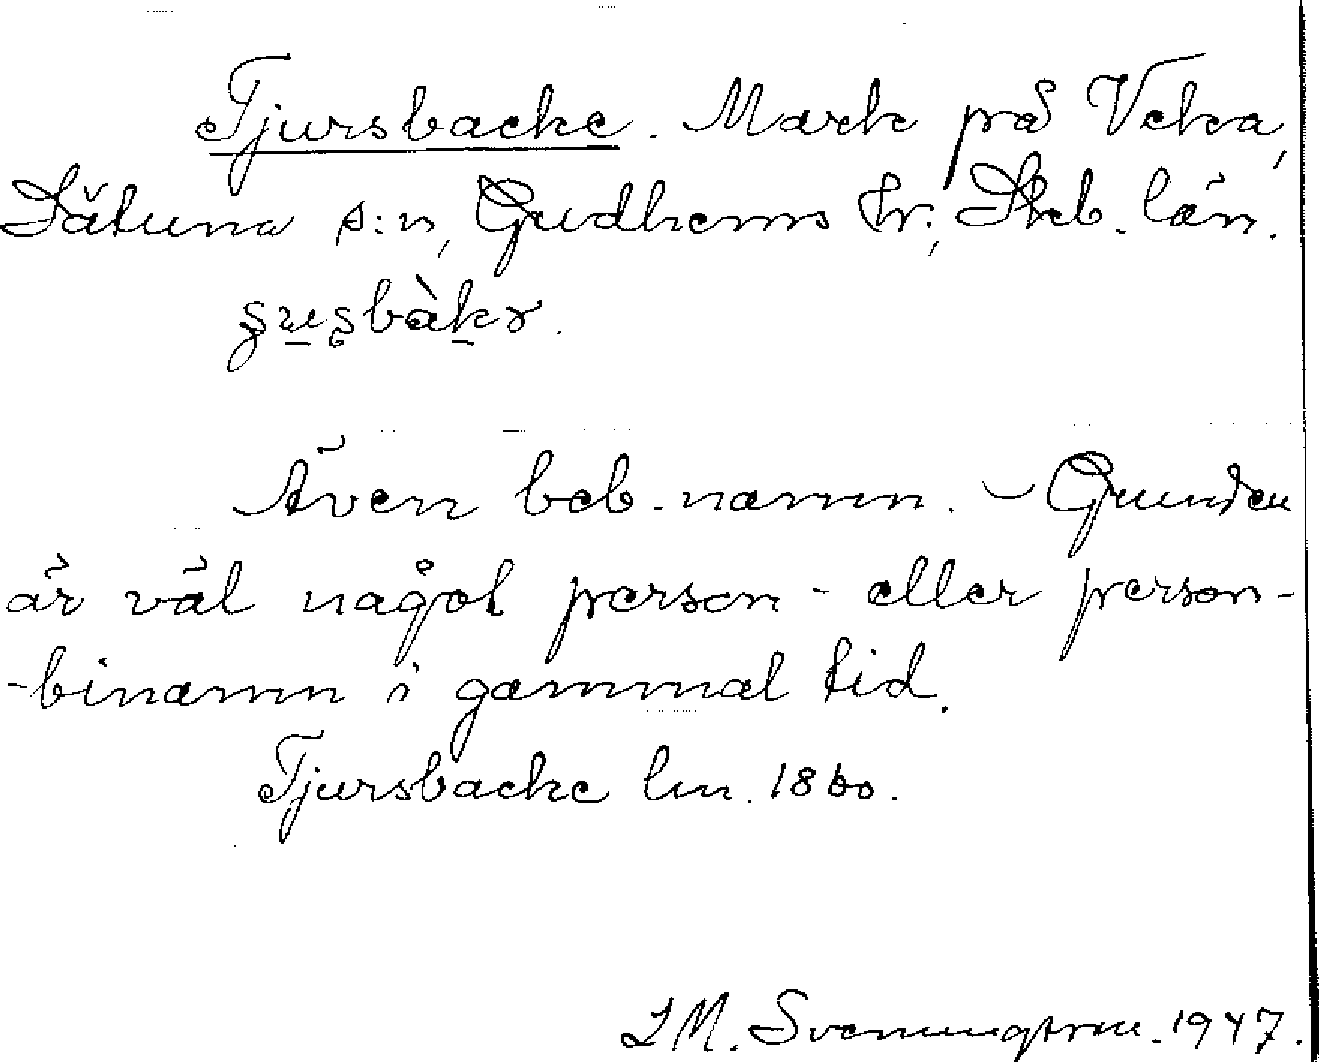 Tjursbacke. Mark på Vcka,
Sätuna s:n, Gudhems hr., Skb. län.
Även beb.namn. – Grunden
är väl något person- eller person-
-binamn i gammal tid.
Tjursbacke lm. 1860.
1947.